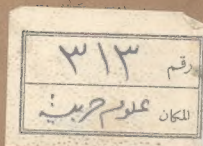 رقم ٣١٣
المكان علوم حربية